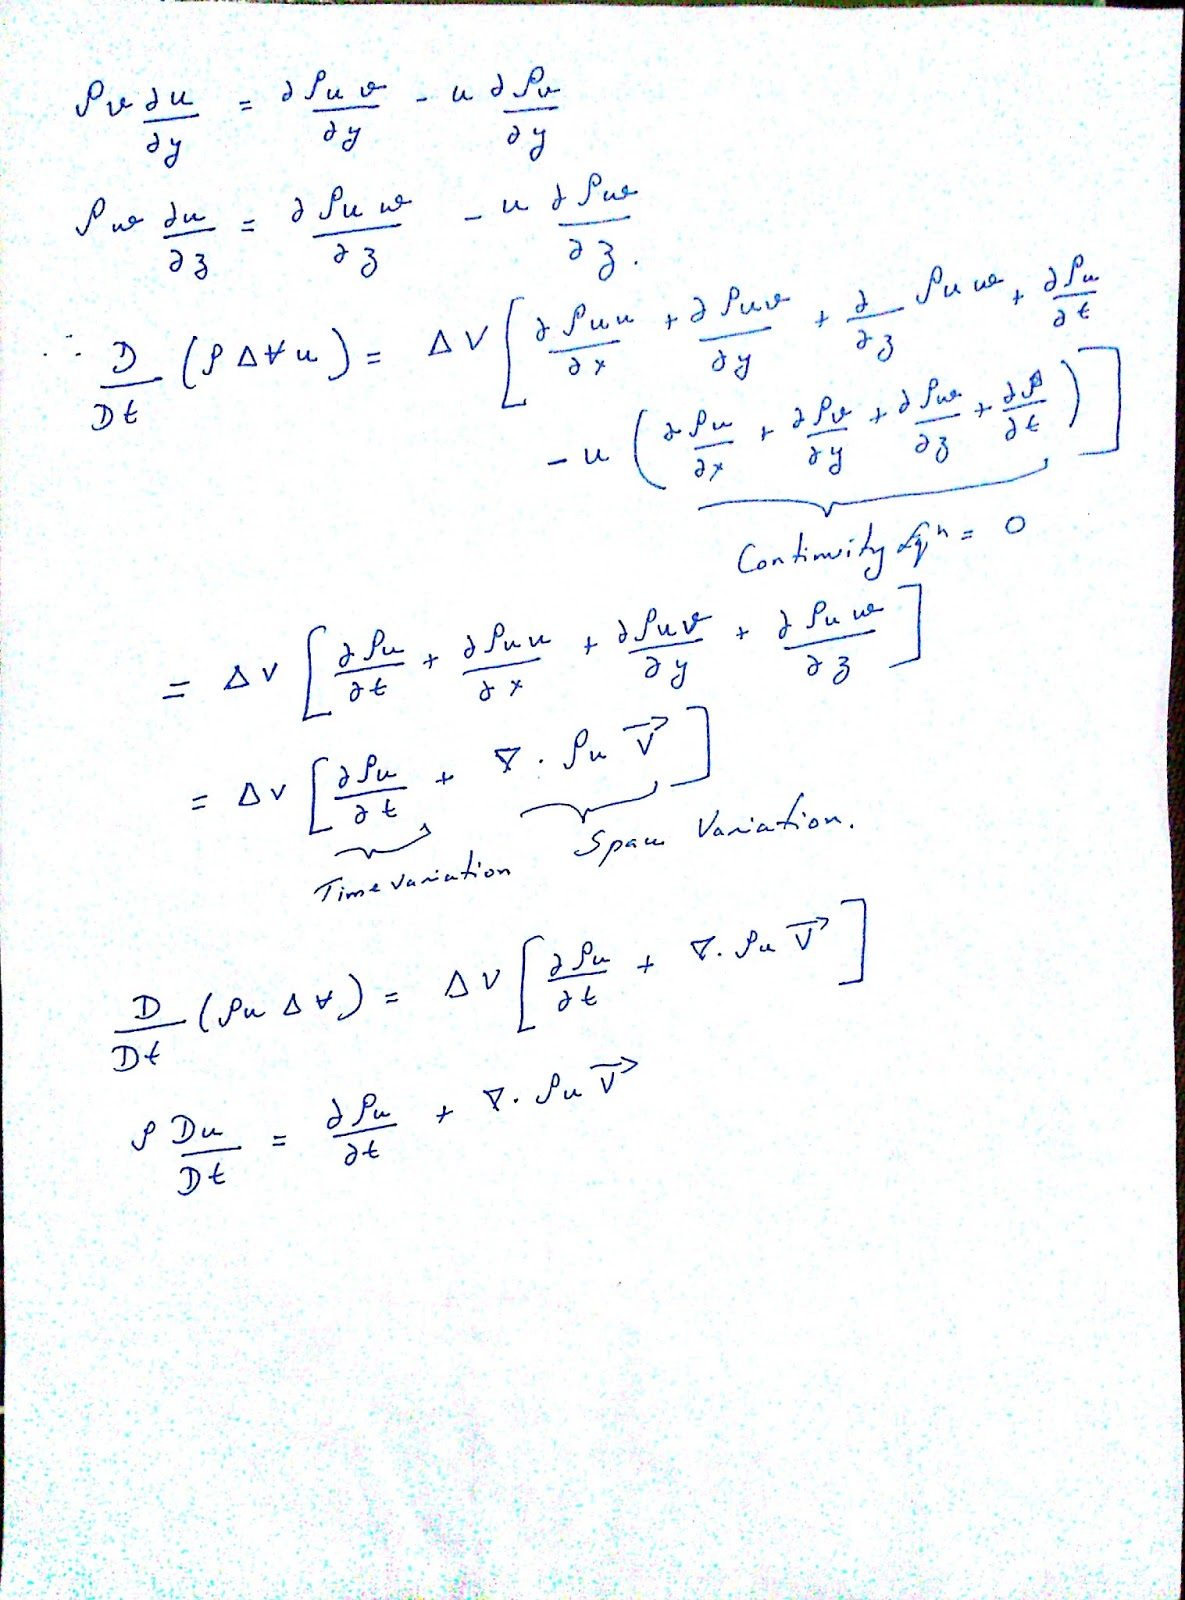 ρv ∂u/∂y = ∂ρuv/∂y - u ∂ρv/∂y
ρw ∂u/∂z = ∂ρuw/∂z - u ∂ρw/∂z.
∴ D/Dt (ρ∆V̶u) = ∆V [∂ρuu/∂x + ∂ρuv/∂y + ∂/∂z ρuw + ∂ρu/∂t
- u (∂ρu/∂x + ∂ρv/∂y + ∂ρw/∂z + ∂ρ/∂t)]
Continuity Eqⁿ = 0
= ∆V [∂ρu/∂t + ∂ρuu/∂x + ∂ρuv/∂y + ∂ρuw/∂z]
= ∆V [∂ρu/∂t + ∇·ρuV⃗]
Time variation Space Variation.
D/Dt (ρu∆V̶) = ∆V [∂ρu/∂t + ∇·ρuV⃗]
ρ Du/Dt = ∂ρu/∂t + ∇·ρuV⃗